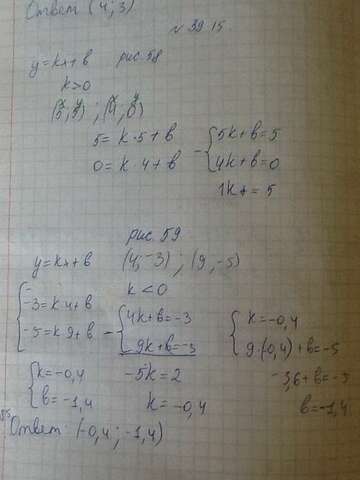 Ответ (4; 3)
№ 39.15.
y = kx + b рис. 58
k > 0
(5; 5) ; (4; 0)
5 = k · 5 + b
0 = k · 4 + b
- { 5k + b = 5
4k + b = 0
1k = 5
рис. 59
y = kx + b (4; -3) ; (9; -5)
k < 0
-3 = k 4 + b
-5 = k 9 + b
- { 4k + b = -3
9k + b = -5
-5k = 2
k = -0,4
{ k = -0,4
9·(-0,4) + b = -5
-3,6 + b = -5
b = -1,4
{ k = -0,4
b = -1,4
Ответ: (-0,4; -1,4)